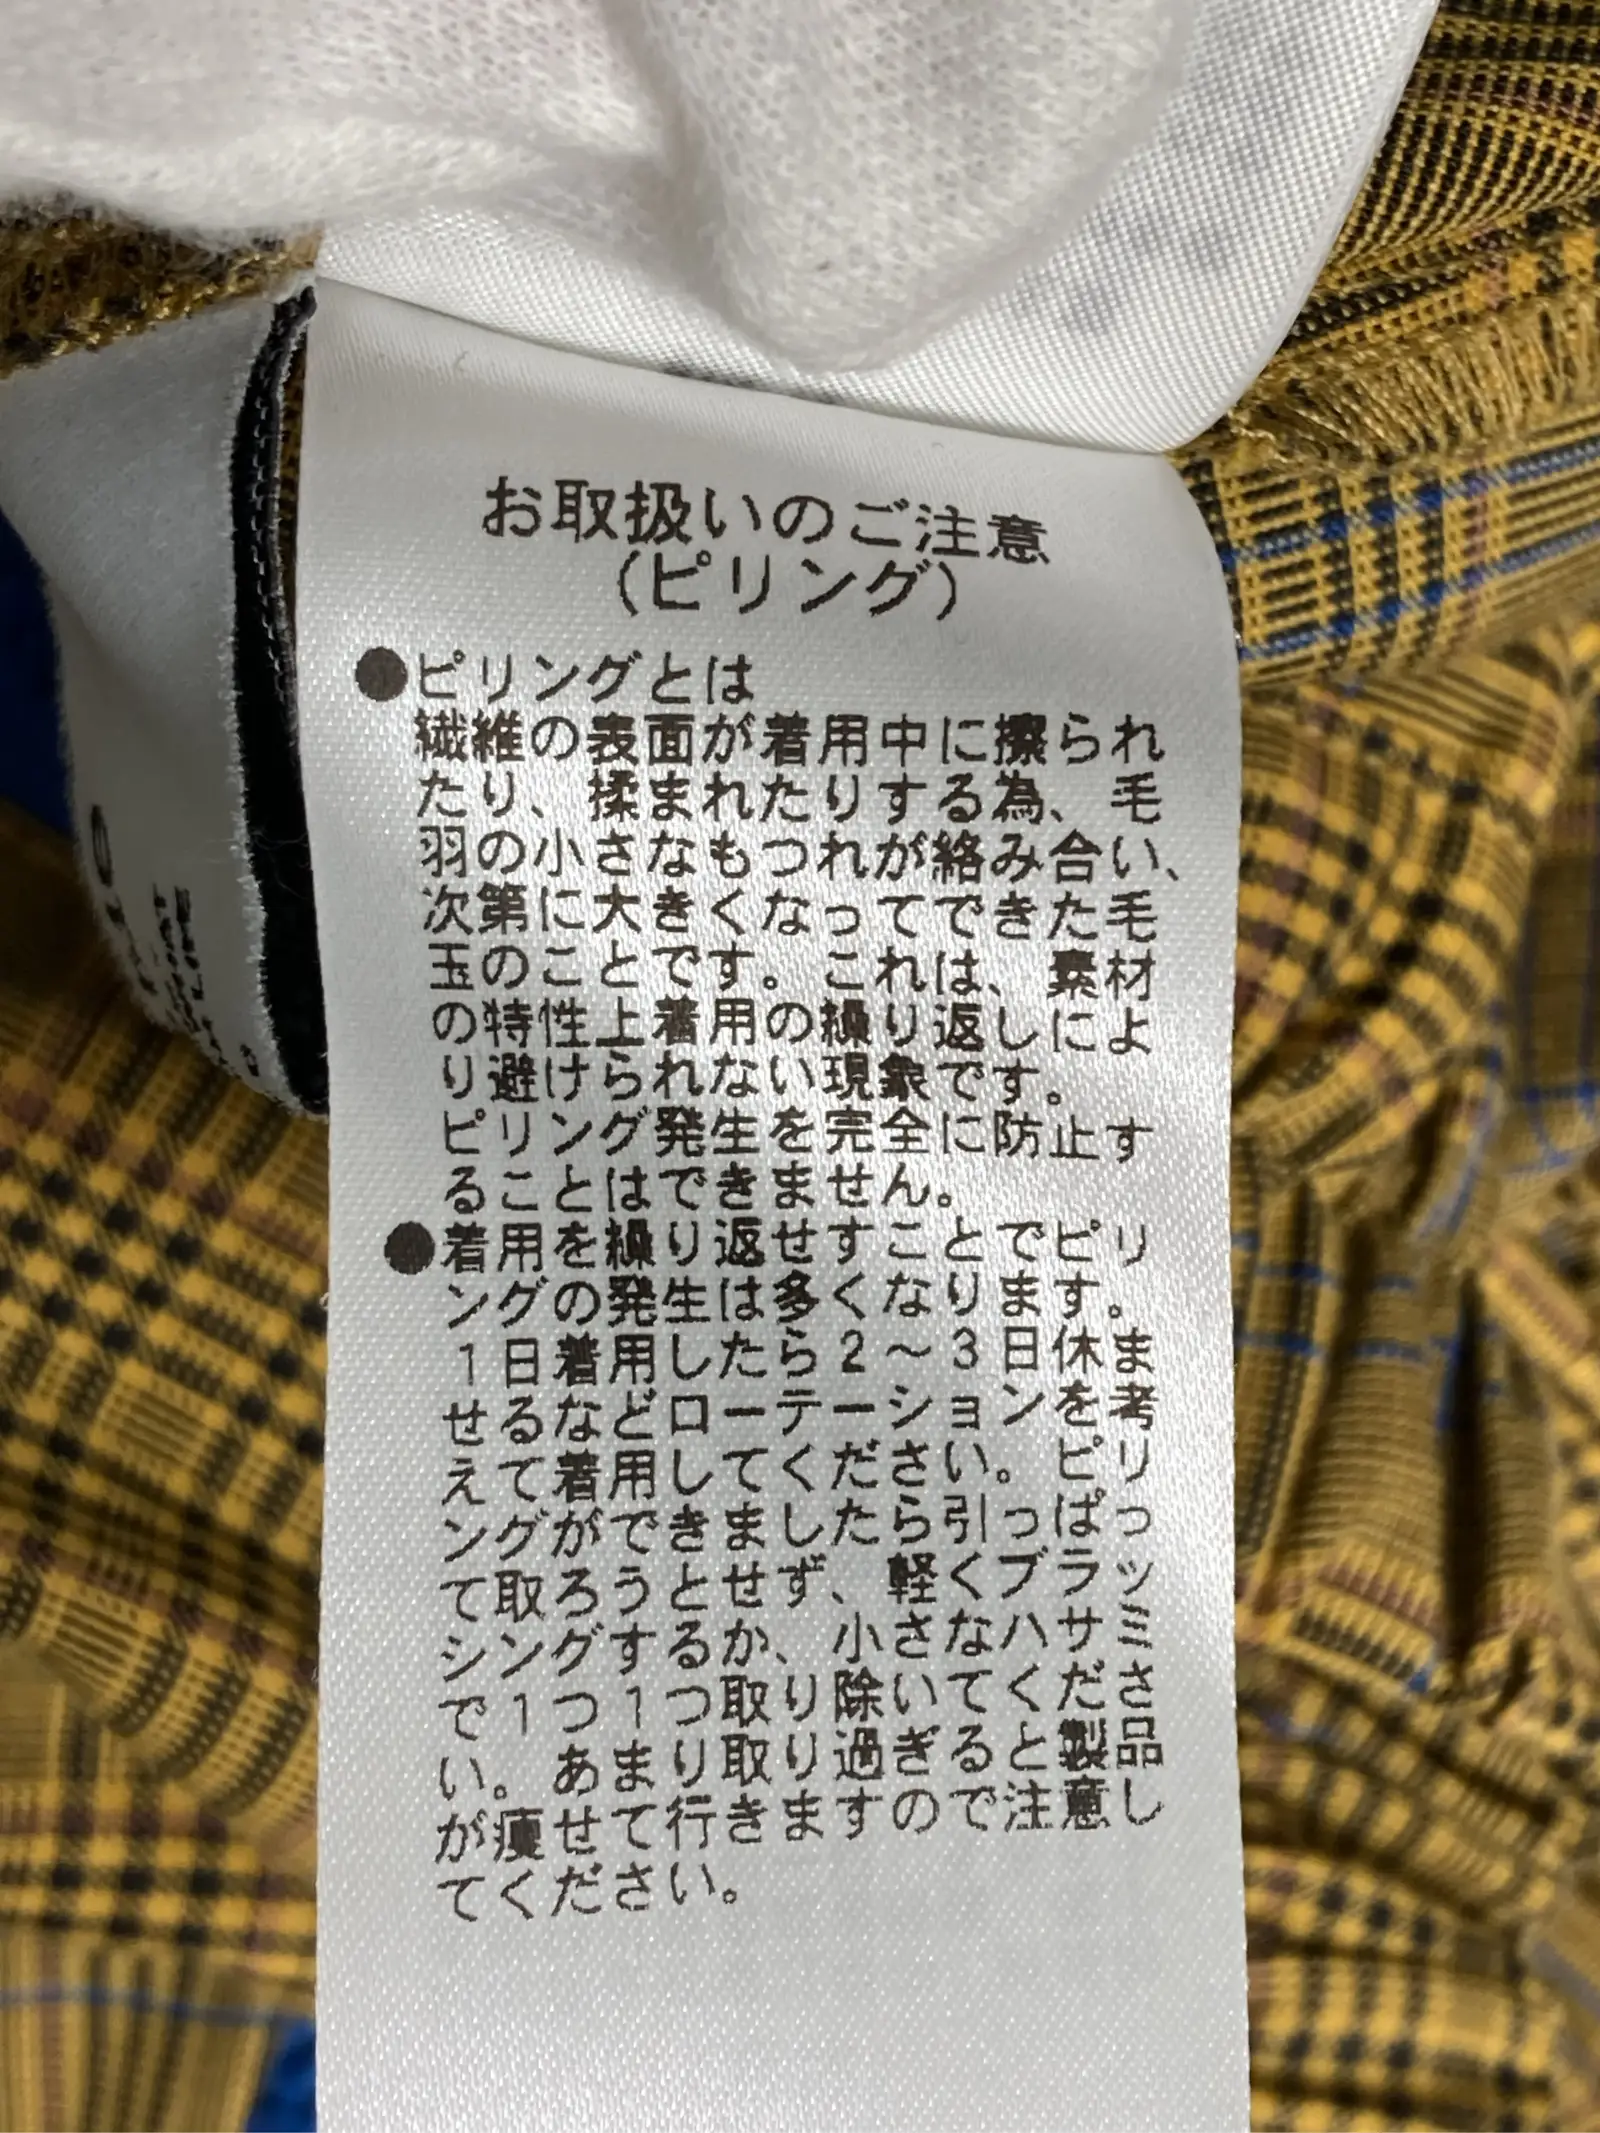 お取扱いのご注意
(ピリング)
●ピリングとは
繊維の表面が着用中に擦られ
たり、揉まれたりする為、毛
羽の小さなもつれが絡み合い、
次第に大きくなってできた毛
玉のことです。これは、素材
の特性上着用の繰り返しによ
り避けられない現象です。
ピリング発生を完全に防止す
ることはできません。
●着用を繰り返せすことでピリ
ングの発生は多くなります。
1日着用したら2～3日休ま
せるなどローテーションを考
えて着用してください。ピリ
ングができましたら引っぱっ
て取ろうとせず、軽くブラッ
シングするか、小さなハサミ
で1つ1つ取り除いてくださ
い。あまり取り過ぎると製品
が痩せて行きますので注意し
てください。